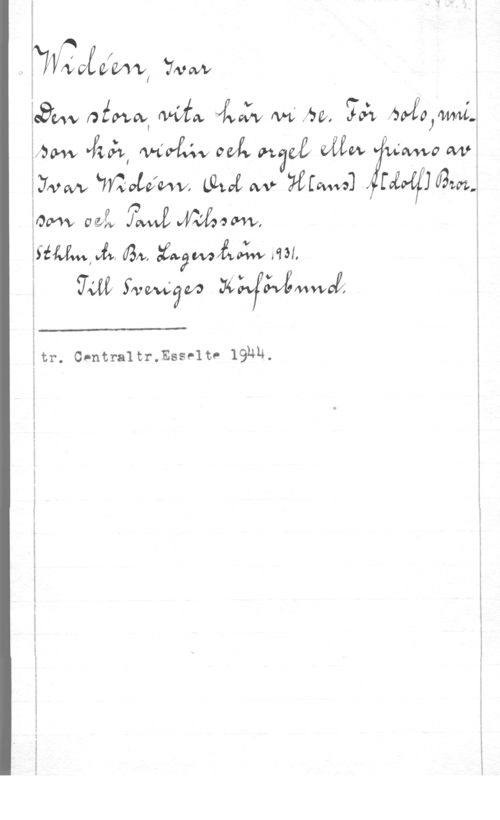 Widéen, Ivar
Den stora, vita här vi se. För solo, uni-
son kör, violin och orgel eller piano av
Ivar Widéen. Ord av H[ans] A[dolf] Bror-
son och Paul Nilsson.
Sthlm, tr. Br. Lagerström 1931.
Till Sveriges Körförbund.
tr. Centraltr.Esselte 1944.